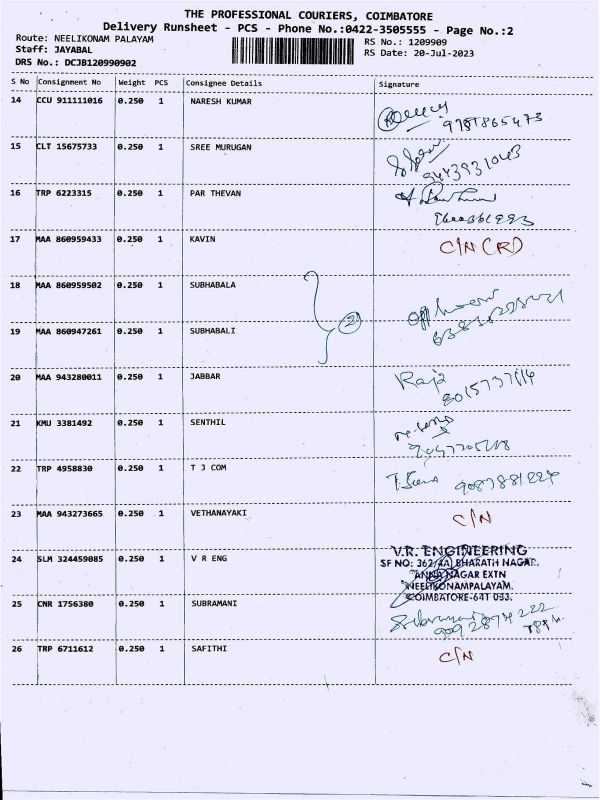 THE PROFESSIONAL COURIERS, COIMBATORE
Delivery Runsheet - PCS - Phone No.:0422-3505555 - Page No.:2
Route: NEELIKONAM PALAYAM
RS No.: 1209909
Staff: JAYABAL
RS Date: 20-Jul-2023
DRS No.: DCJB120990902
S No Consignment No Weight PCS Consignee Details Signature
14 CCU 911111016 0.250 1 NARESH KUMAR
15 CLT 15675733 0.250 1 SREE MURUGAN
9443931043
16 TRP 6223315 0.250 1 PAR THEVAN
17 MAA 860959433 0.250 1 KAVIN C/N (RD)
18 MAA 860959502 0.250 1 SUBHABALA
2
19 MAA 860947261 0.250 1 SUBHABALI
20 MAA 943280011 0.250 1 JABBAR Raja
21 KMU 3381492 0.250 1 SENTHIL
22 TRP 4958830 0.250 1 T J COM
23 MAA 943273665 0.250 1 VETHANAYAKI C/N
24 SLM 324459085 0.250 1 V R ENG V.R. ENGINEERING
SF NO: 362/4A) BHARATH NAGAR,
ANNA NAGAR EXTN
NEELIKONAMPALAYAM,
COIMBATORE-641 033.
25 CNR 1756380 0.250 1 SUBRAMANI Subramani
26 TRP 6711612 0.250 1 SAFITHI C/N